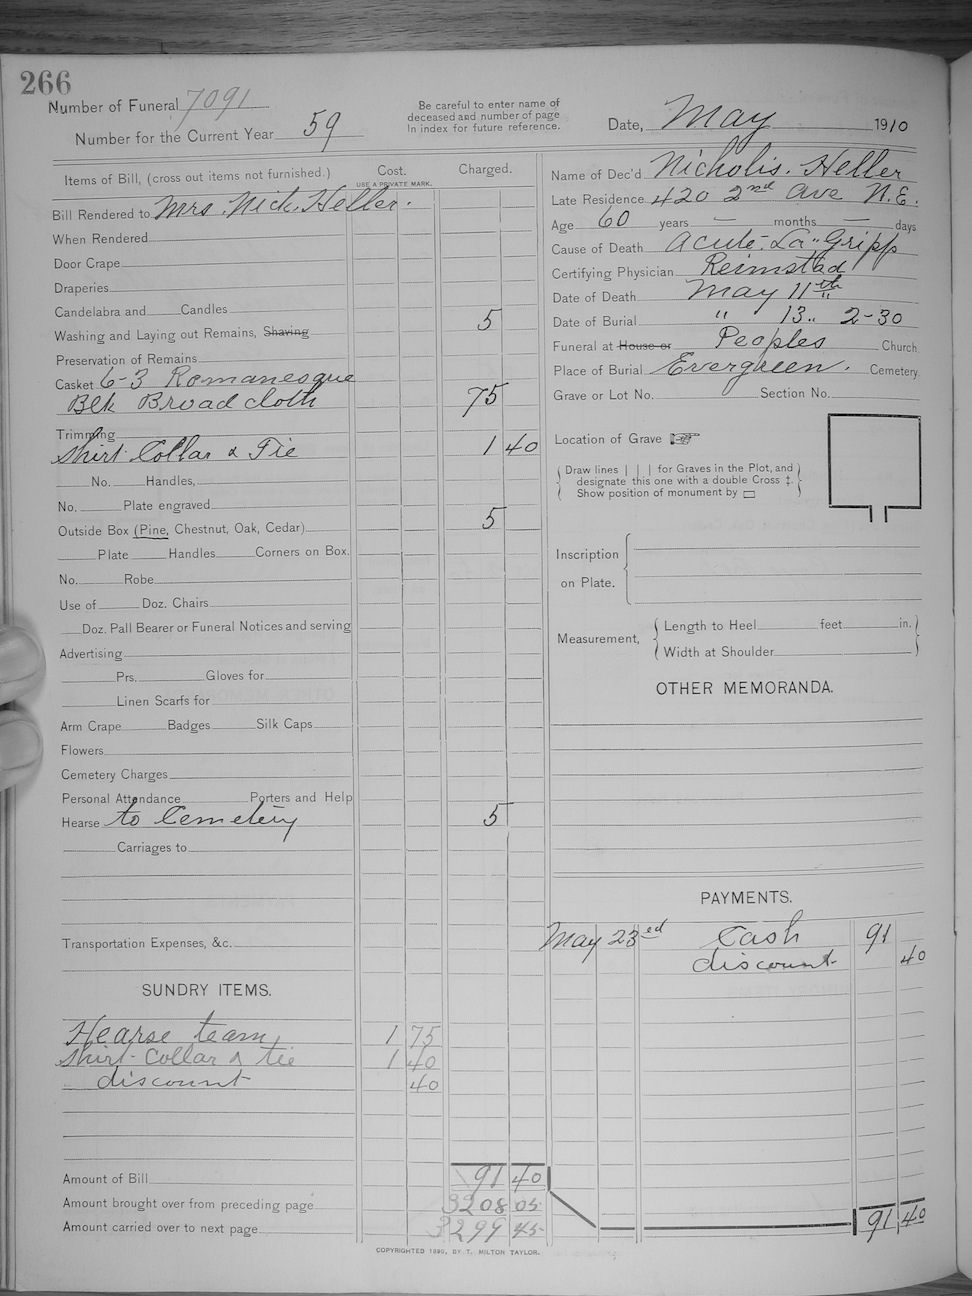 266
Number of Funeral 7091
Number for the Current Year 59
Be careful to enter name of
deceased and number of page
In index for future reference.
Date, May 1910
Items of Bill, (cross out items not furnished.) Cost. Charged.
USE A PRIVATE MARK.
Bill Rendered to Mrs. Nick Heller.
When Rendered
Door Crape
Draperies
Candelabra and Candles
Washing and Laying out Remains, Shaving 5
Preservation of Remains
Casket 6-3 Romanesque
Blk Broad cloth 75
Trimming
Shirt Collar & Tie 1 40
No. Handles,
No. Plate engraved
Outside Box (Pine, Chestnut, Oak, Cedar) 5
Plate Handles Corners on Box.
No. Robe
Use of Doz. Chairs
Doz. Pall Bearer or Funeral Notices and serving
Advertising
Prs. Gloves for
Linen Scarfs for
Arm Crape Badges Silk Caps
Flowers
Cemetery Charges
Personal Attendance Porters and Help
Hearse to Cemetery 5
Carriages to
Transportation Expenses, &c.
SUNDRY ITEMS.
Hearse team, 1 75
Shirt Collar & tie 1 40
discount 40
Amount of Bill 91 40
Amount brought over from preceding page 3208 05
Amount carried over to next page 3299 45
COPYRIGHTED 1890, BY T. MILTON TAYLOR.
Name of Dec'd Nicholis. Heller
Late Residence 420 2nd Ave N.E.
Age 60 years — months — days
Cause of Death Acute La Gripp
Certifying Physician Reimstad
Date of Death May 11th
Date of Burial " 13 " 2-30
Funeral at House or Peoples Church
Place of Burial Evergreen. Cemetery.
Grave or Lot No. Section No.
Location of Grave ☞
Draw lines | | | for Graves in the Plot, and
designate this one with a double Cross ‡.
Show position of monument by ▭
Inscription
on Plate.
Measurement, Length to Heel feet in.
Width at Shoulder
OTHER MEMORANDA.
PAYMENTS.
May 23ed Cash 91
discount 40
91 40